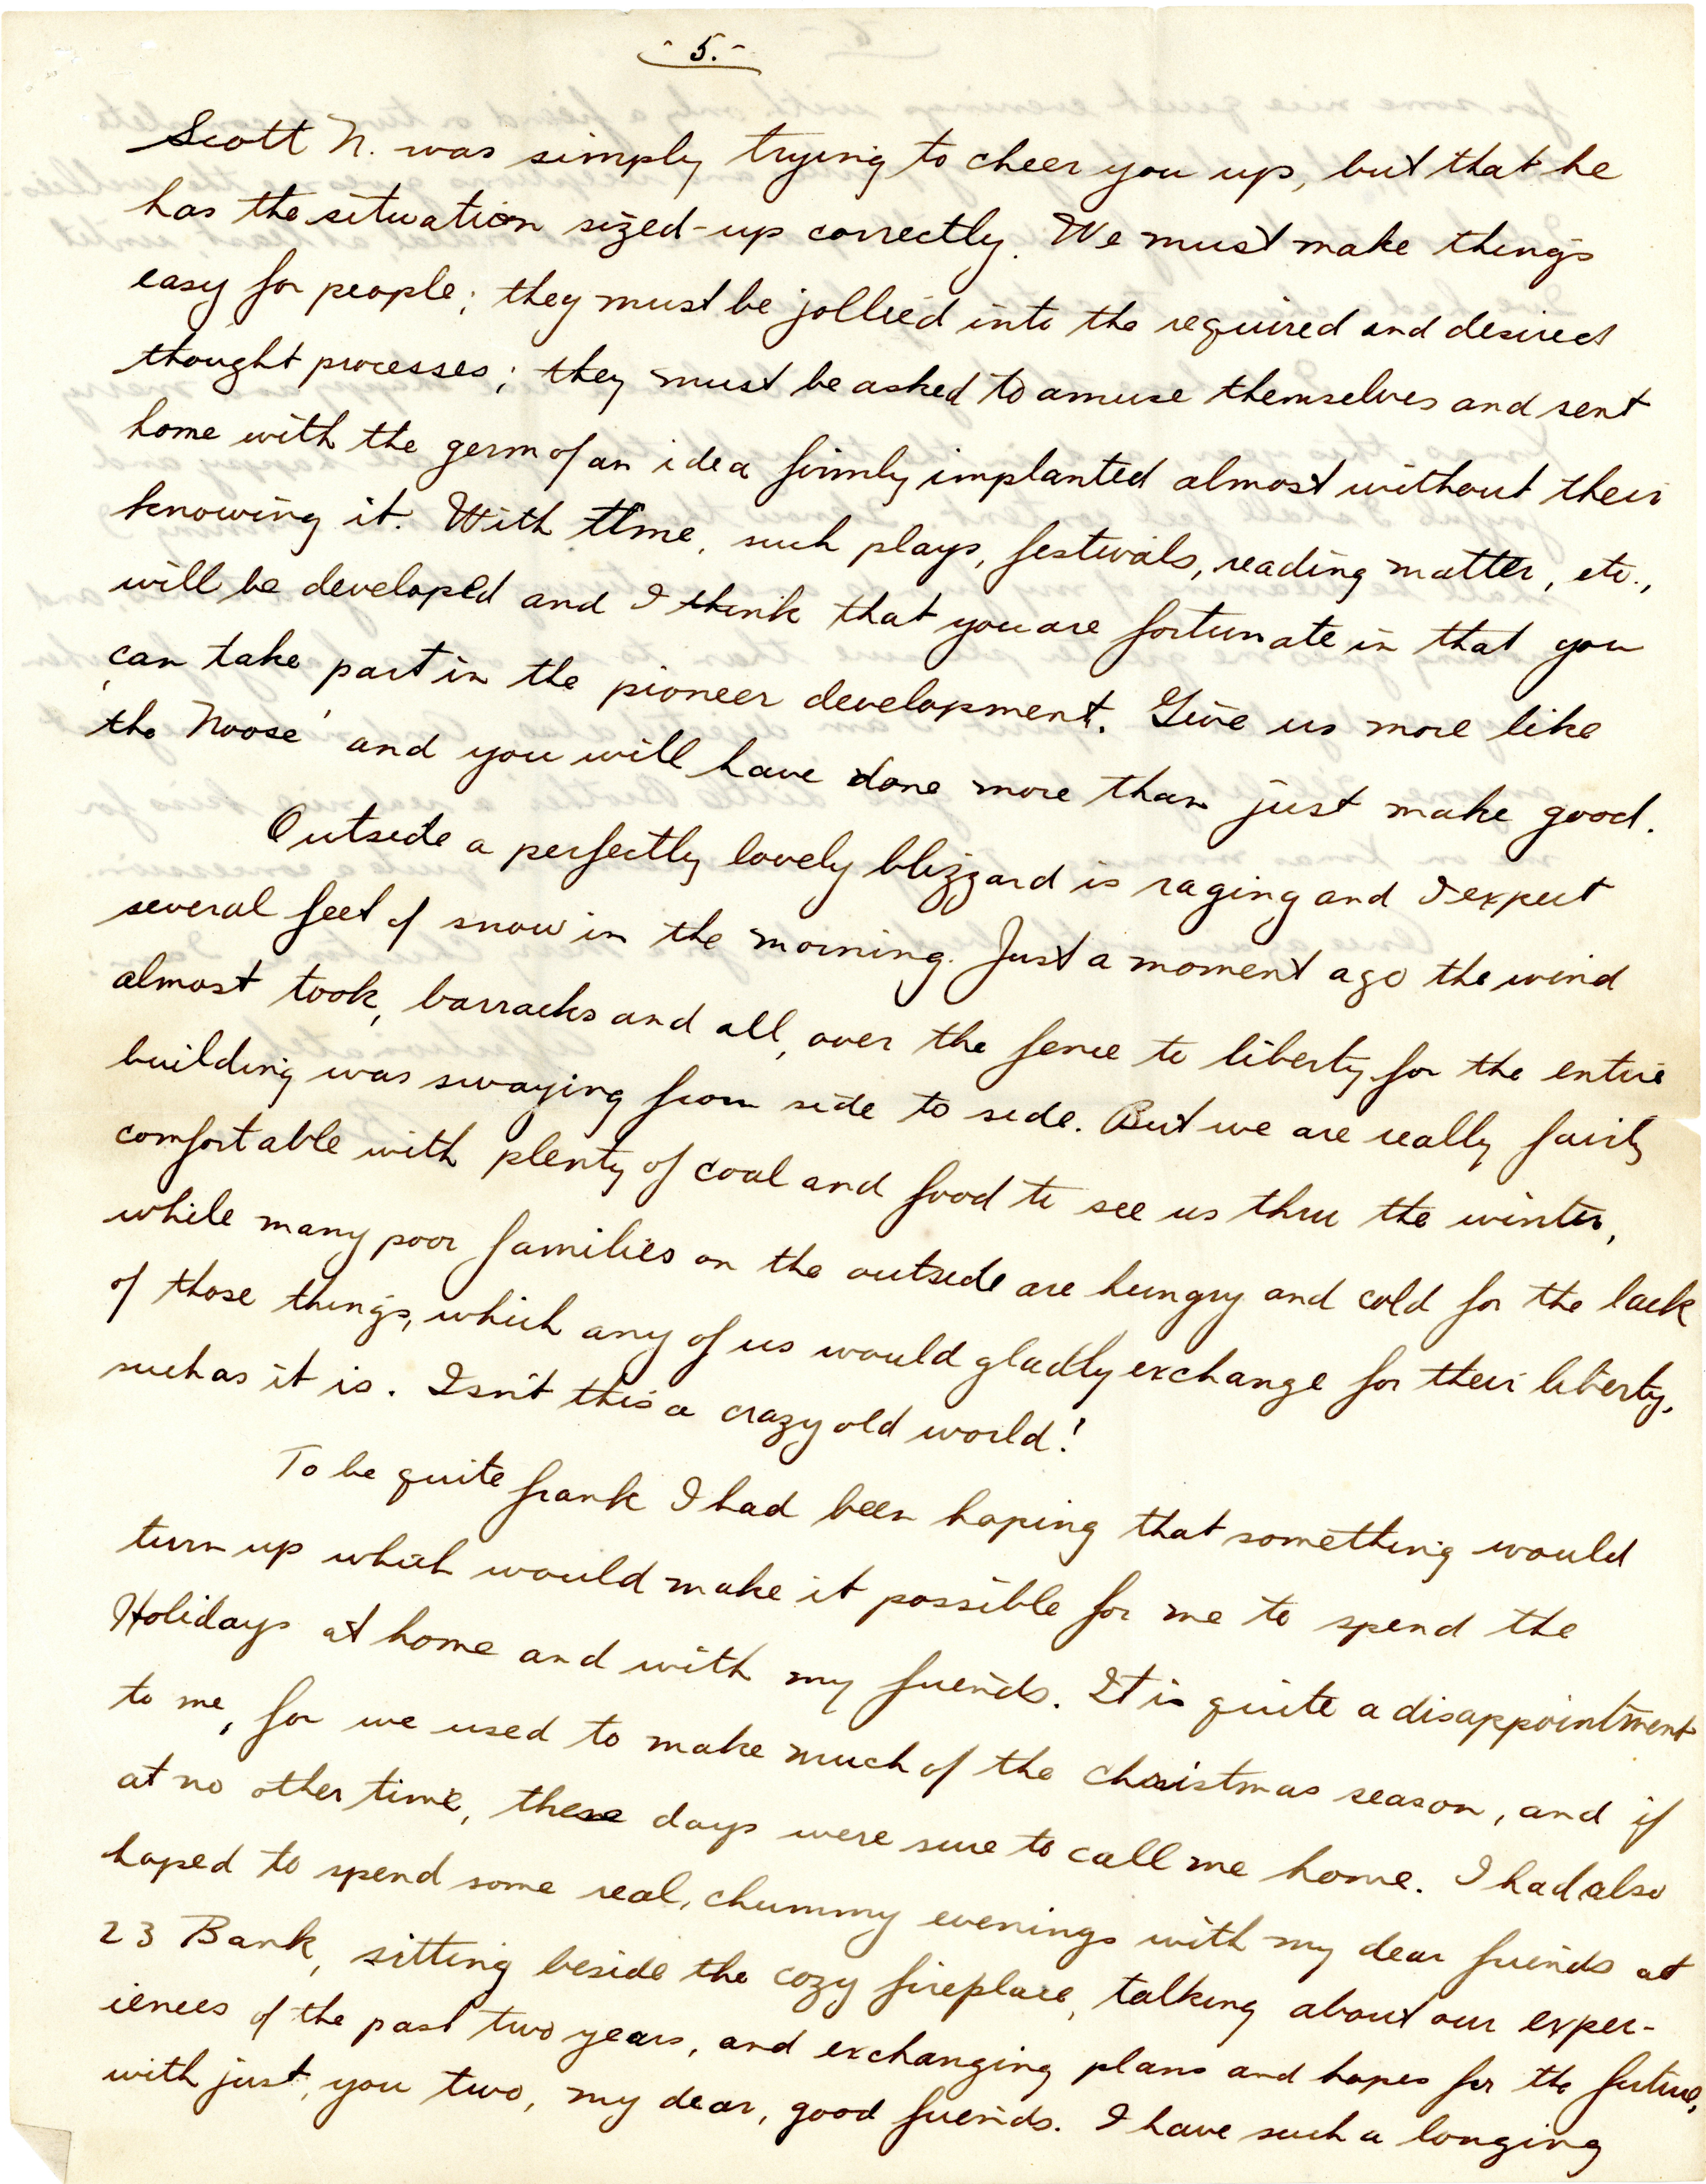 - 5. -
Scott N. was simply trying to cheer you up, but that he
has the situation sized-up correctly. We must make things
easy for people; they must be jollied into the required and desired
thought processes; they must be asked to amuse themselves and sent
home with the germ of an idea firmly implanted almost without their
knowing it. With time, such plays, festivals, reading matter, etc.,
will be developed and I think that you are fortunate in that you
can take part in the pioneer development. Give us more like
'the Noose' and you will have done more than just make good.
Outside a perfectly lovely blizzard is raging and I expect
several feet of snow in the morning. Just a moment ago the wind
almost took, barracks and all, over the fence to liberty for the entire
building was swaying from side to side. But we are really fairly
comfortable with plenty of coal and food to see us thru the winter,
while many poor families on the outside are hungry and cold for the lack
of those things, which any of us would gladly exchange for their liberty,
such as it is. Isn't this a crazy old world!
To be quite frank I had been hoping that something would
turn up which would make it possible for me to spend the
Holidays at home and with my friends. It is quite a disappointment
to me, for we used to make much of the Christmas season, and if
at no other time, these days were sure to call me home. I had also
hoped to spend some real, chummy evenings with my dear friends at
23 Bank, sitting beside the cozy fireplace, talking about our exper-
iences of the past two years, and exchanging plans and hopes for the future,
with just, you two, my dear, good friends. I have such a longing